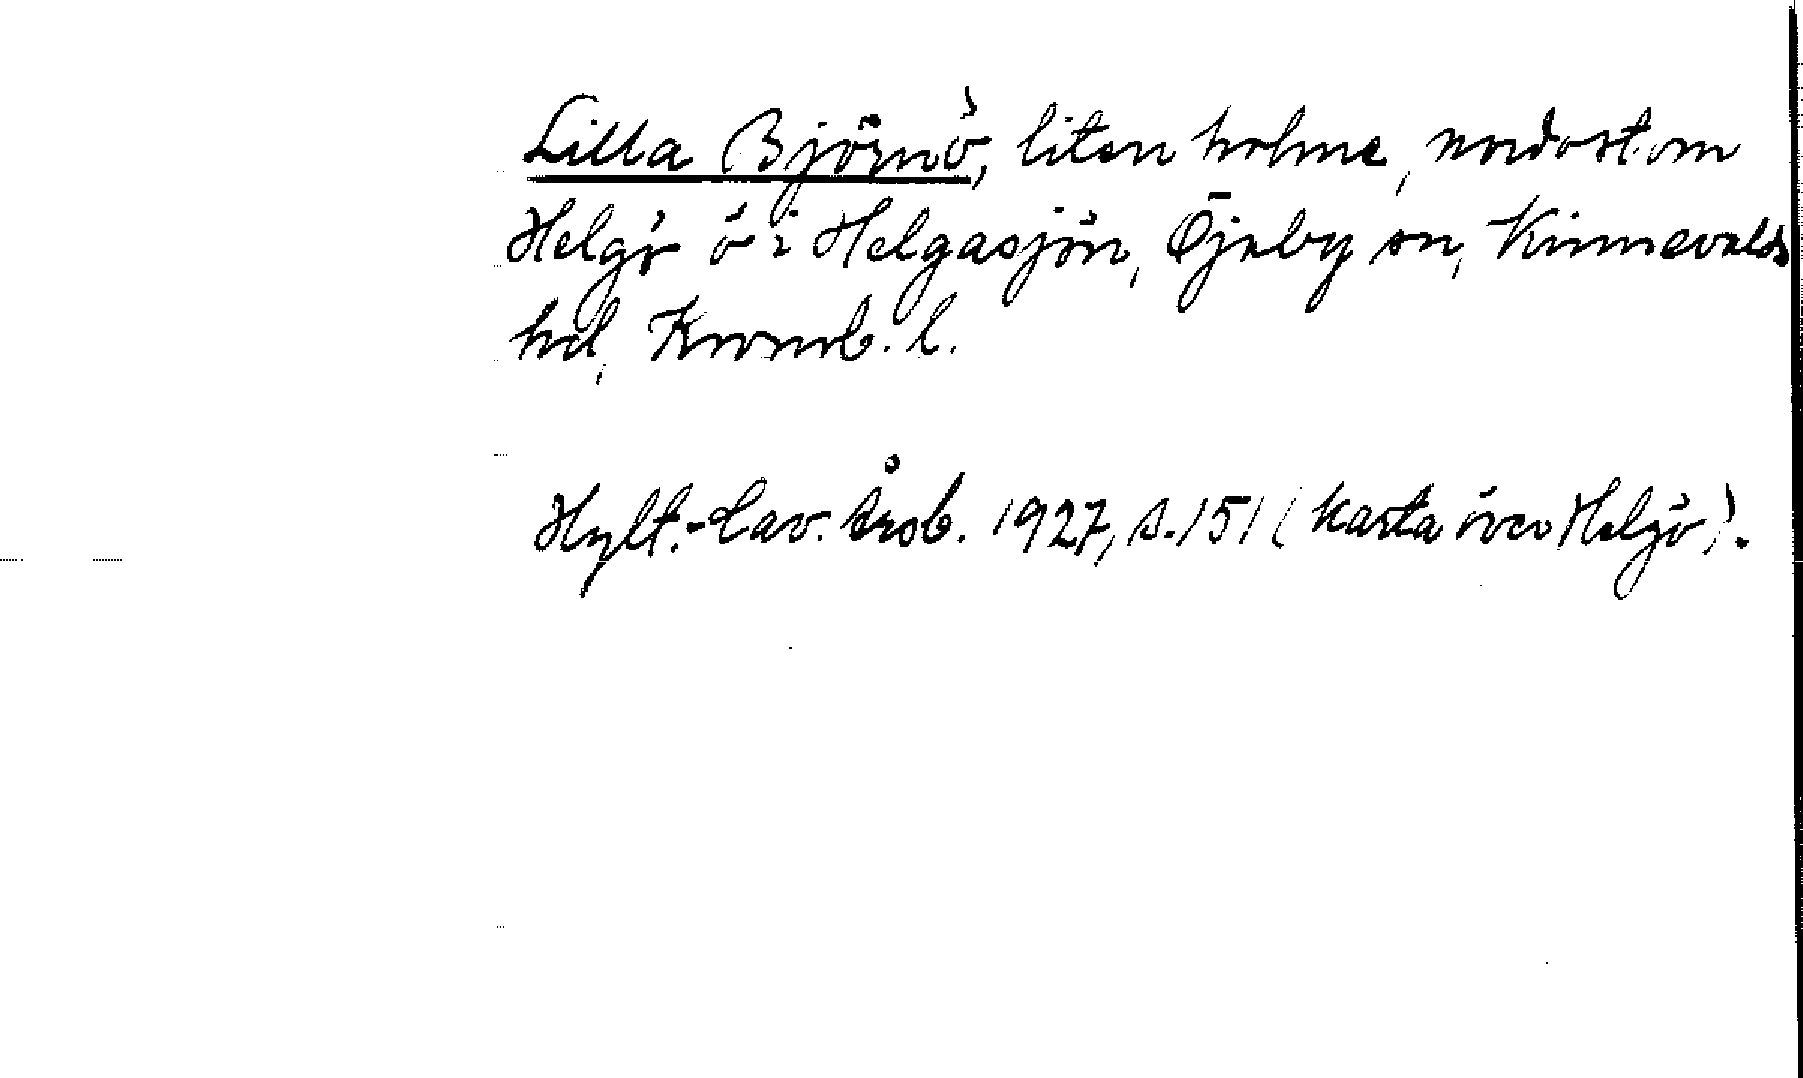 Lilla Björnö, liten holme, nordost om
Helgö ö i Helgasjön, Öjaby sn, Kinnevalds
hd, Kronob. l.
Hylt.-Cav. årsb. 1927, s. 151 (karta över Helgö).